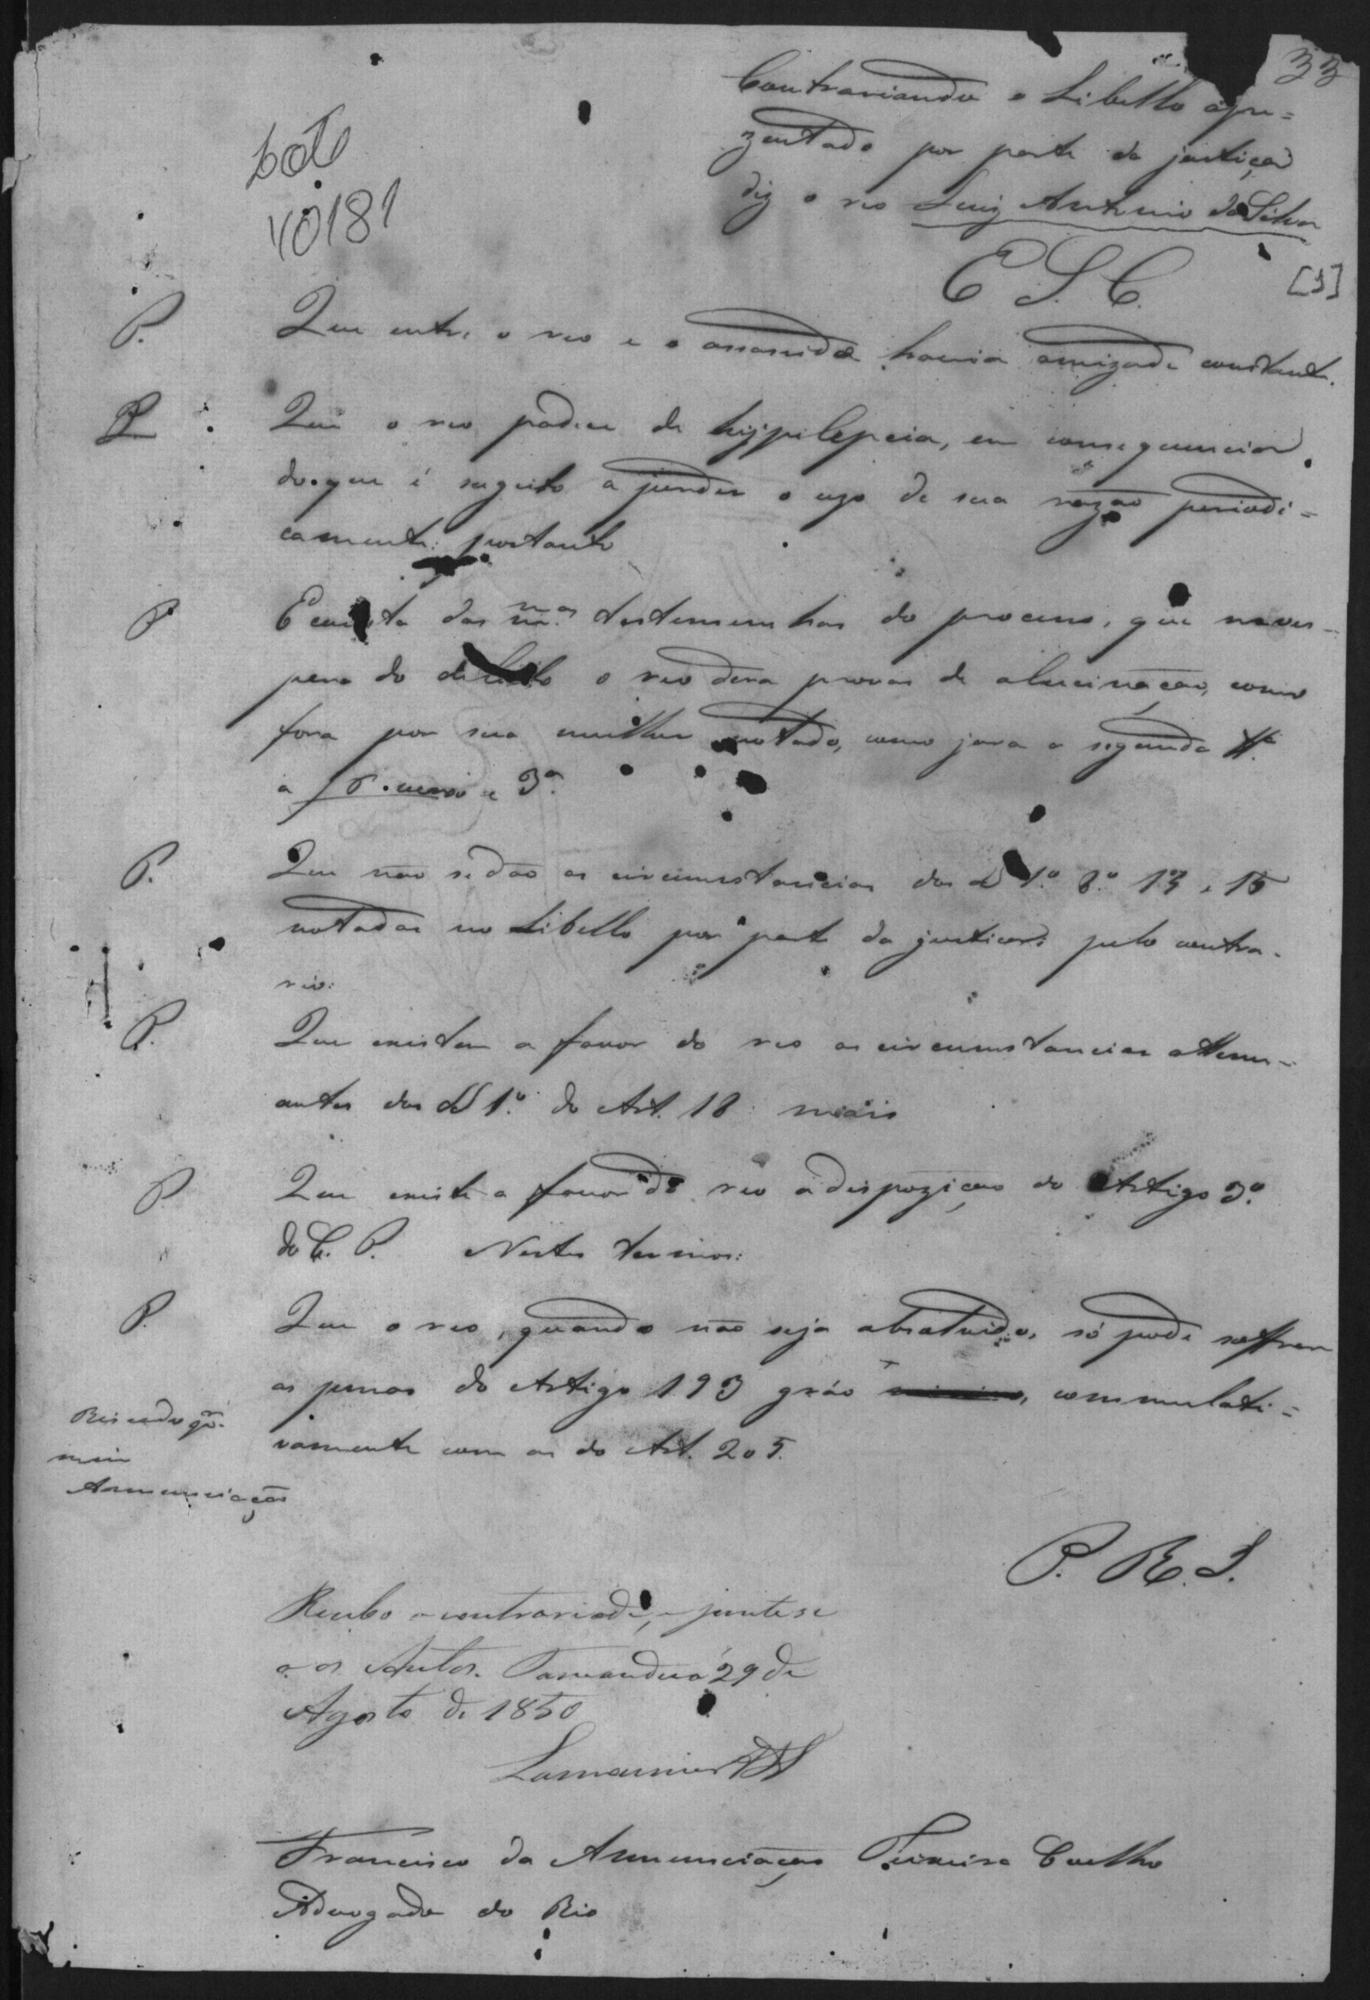 33
Contrariando o Libello apre=
zentado por parte da justiça
diz o reo Luiz Antonio da Silva
E. S. C.
[1]
P. Que entre o reo e o assassinado havia amizade constante.
P Que o reo padece de hyppilepcia, em consequencia
do que é sugeito a perder o uso de sua razão periodi=
camente: portanto
P E consta das mmas testemunhas do processo, que na ves-
pera do delicto o reo dera provas de alucinação, como
fora por sua mulher notado, como jura a segunda ta
a primeira e 3ª.
P. Que não se dão as circumstancias dos §§ 1º. 8º 13, e 15
notadas no Libello por parte da justiça: pelo contra-
rio:
P. Que existem a favor do reo as circumstancias attenu=
antes dos §§ 1º. do Art. 18: mais
P Que existe a favor do reo a dispozição do Artigo 3º.
do C. P. Nestes termos:
P. Que o reo, quando não seja absolvido, só pode soffrer
as penas do Artigo 193 gráo minimo, commulati=
vamente com as do Art. 205.
Annunciação
P. R. J.
Recebo a contrariede, e juntese
a os Autos. Tamanduá 29 de
Agosto de 1850
Lamounier
Francisco da Annunciação Teixeira Coelho
Advogado do Reo
10181